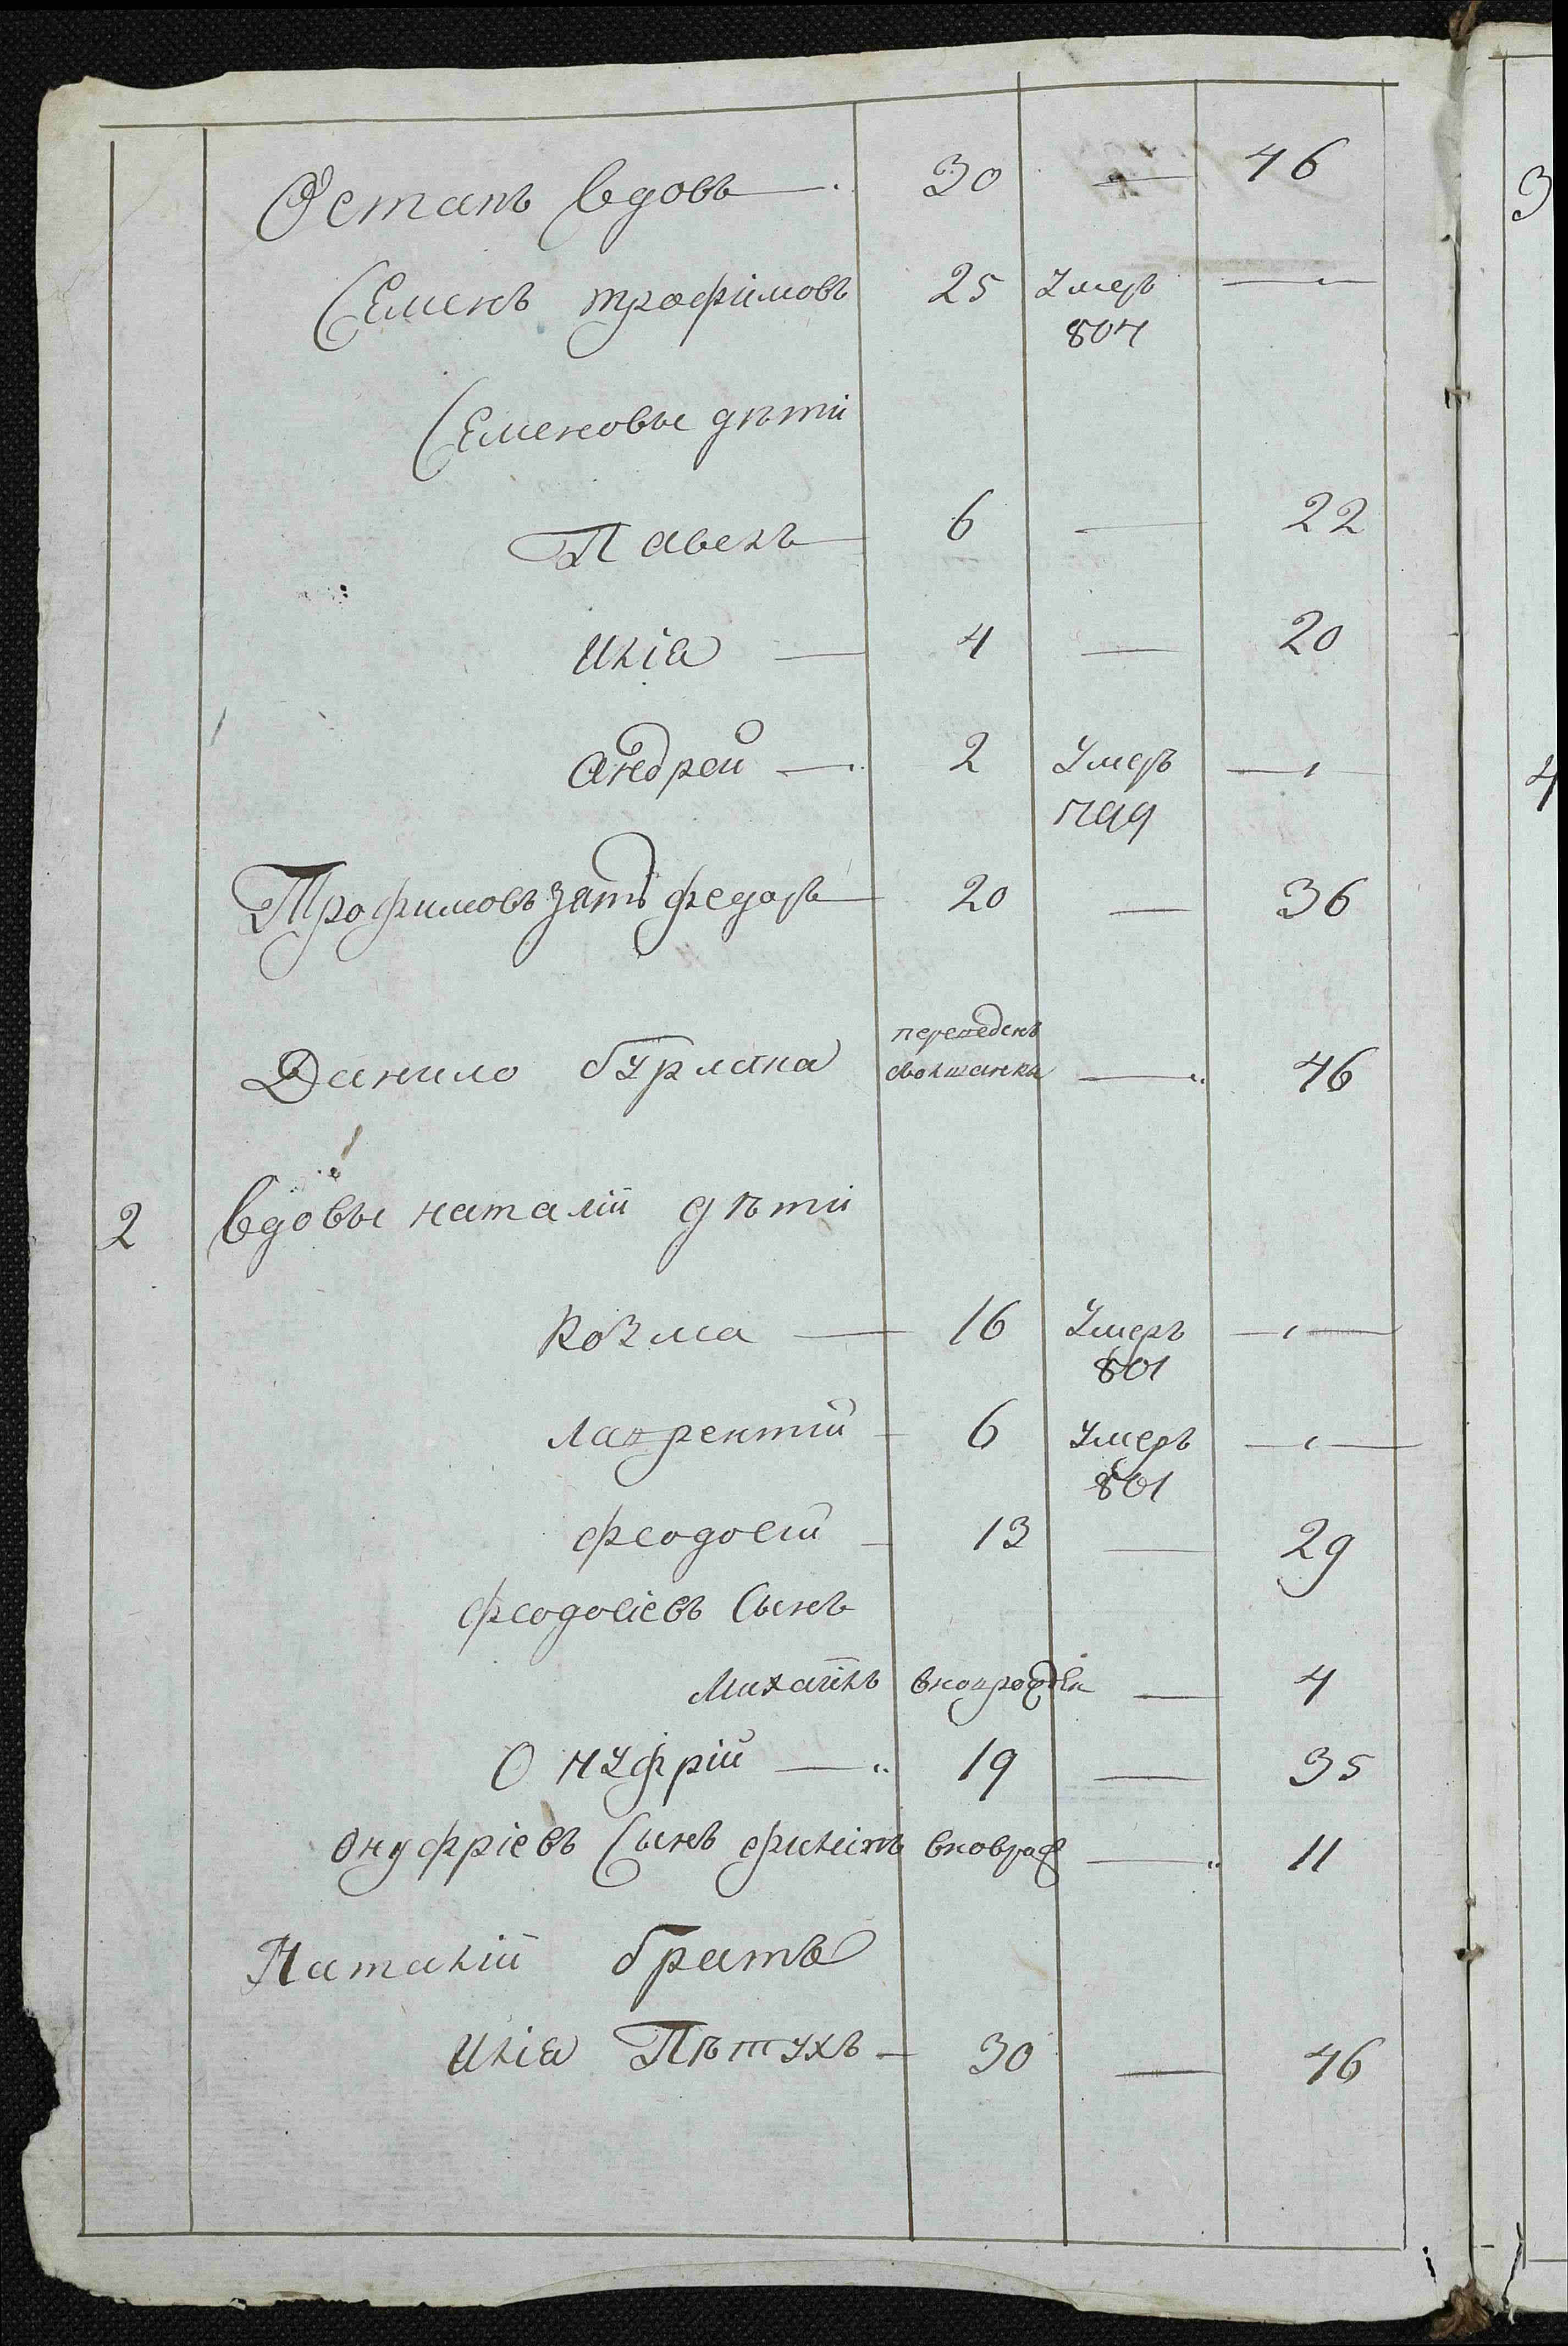 Остапъ вдовъ — 30 — 46
Семенъ трофимовъ 25 Умеръ —
804
Семеновы дѣти
Павелъ 6 — 22
Илія — 4 — 20
андрей — 2 Умеръ —
799
Трофимовъ зять федоръ 20 — 36
переведенъ
Данило бурлака — 46
2 вдовы наталіи дѣти
Козма — 16 Умеръ —
801
лаврентій 6 Умеръ —
801
феодосій 13 — 29
феодосіевъ Сынъ
Михаилъ вновьрожден — 4
Онуфрій — 19 — 35
Онуфріевъ Сынъ филипъ вновьрож — 11
Наталіи братъ
Илія Пѣтухъ — 30 — 46
3
4